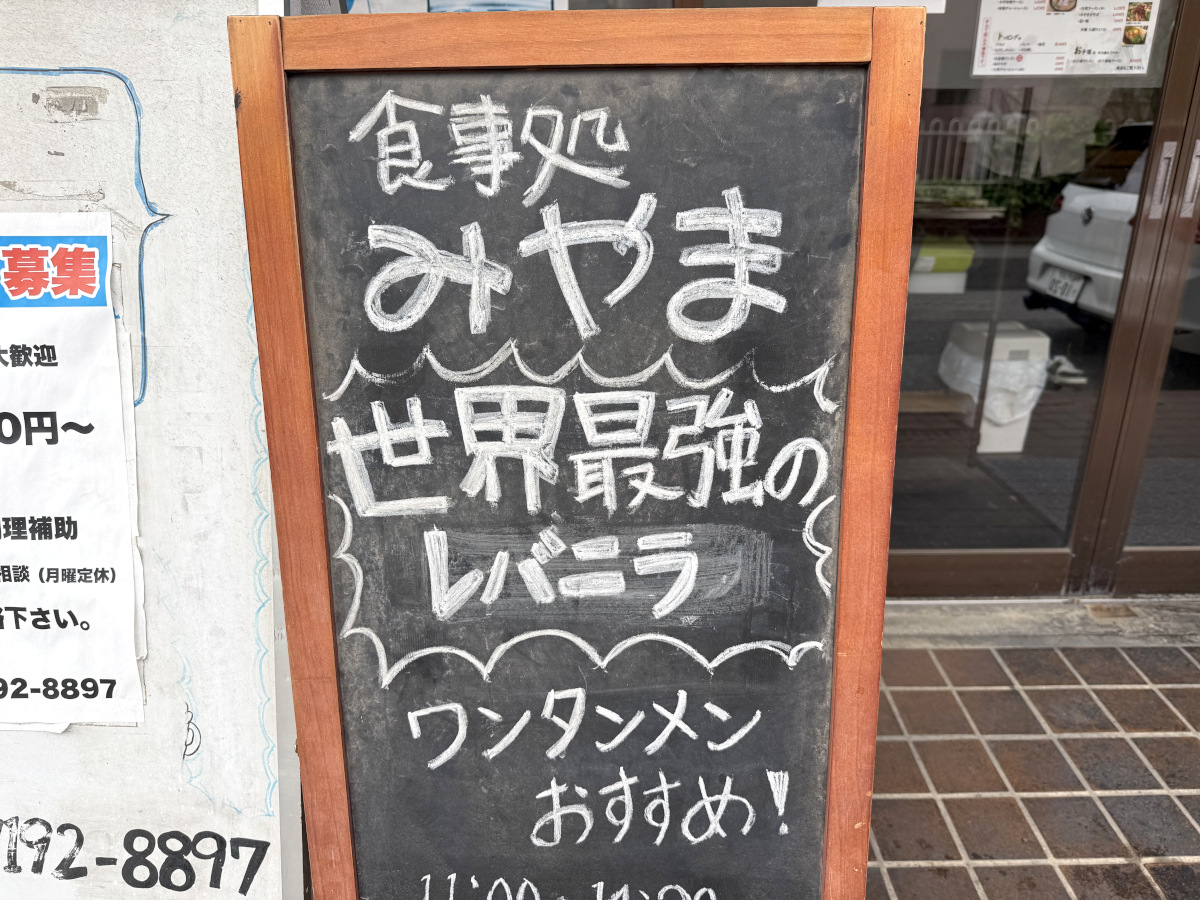 食事処
みやま
世界最強の
レバニラ
ワンタンメン
おすすめ!
募集
大歓迎
0円〜
理補助
相談（月曜定休）
下さい。
92-8897
192-8897
トッピング